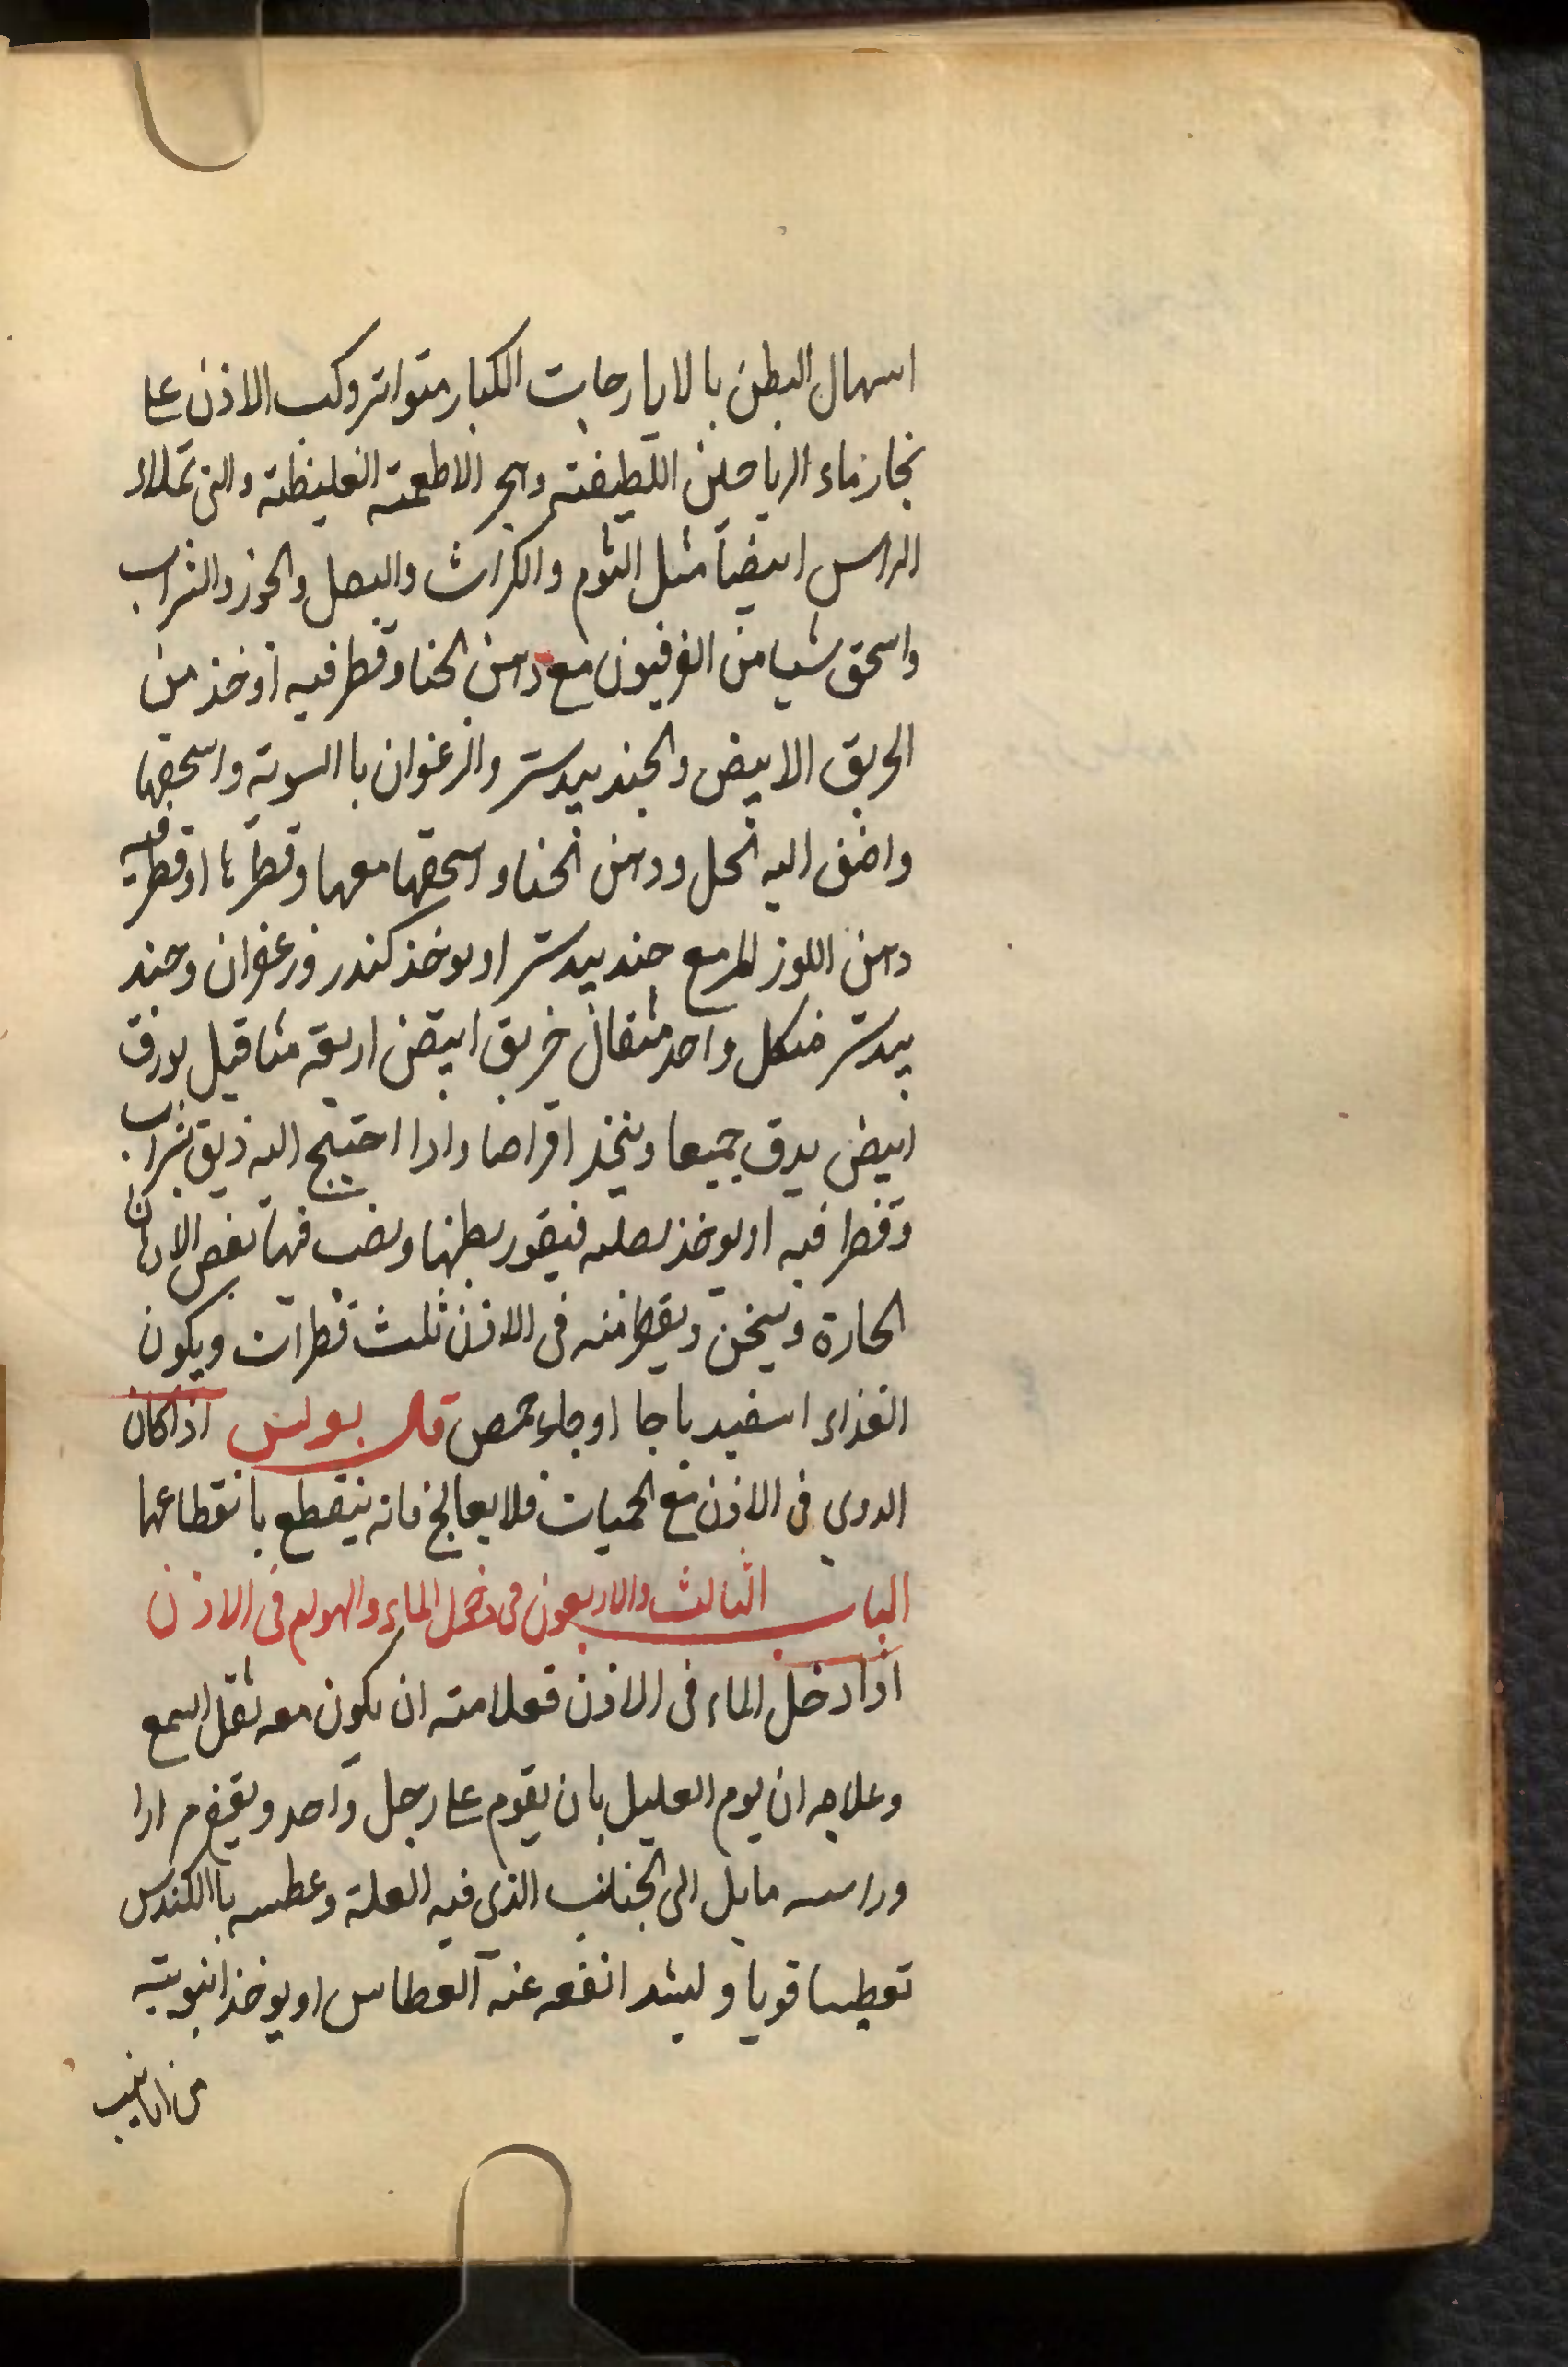 اسهال البطن بالايارجات الكبار متواتر وكب الاذن على
بخار ماء الرياحين اللطيفة وهجر الاطعمة الغليظة والتى تملاء
الراس ايضاً مثل الثوم والكراث والبصل والجوز والشراب
واسحق شيا من الفرفيون مع دهن الحنا وقطر فيه اوخذ من
الخربق الابيض والجندبيدستر والزعفران باالسوية واسحقها
واضف اليه الخل ودهن الحنا واسحقها معها وقطرها اوقطر فيه
دهن اللوز المر مع جندبيدستر اويوخذ كندر وزعفران وجند
بيدستر من كل واحد مثقال خربق ابيض اربعة مثاقيل بورق
ابيض يدق جميعا ويتخذ اقراصا واذا احتيج اليه ذيق بشراب
وقطر فيه اويوخذ بصله فيقور بطنها ويصب فيها بعض الادهان
الحارة ويسخن ويقطر منه فى الاذن ثلث قطرات ويكون
الغذاء اسفيدباجا اوماء حمص قال بولس اذا كان
الدوي فى الاذن مع الحميات فلا يعالج فانه ينقطع بانقطاعها
الباب الثالث والاربعون فى دخول الماء والهوام فى الاذن
اذا دخل الماء فى الاذن فعلامته ان يكون معه ثقل السمع
وعلاجه ان يوم العليل بان يقوم على رجل واحد ويقفز مرارا
وراسه مايل الى الجانب الذى فيه العلة وعطسه باالكندس
تعطيسا قويا وليشد انفه عند العطاس اويوخذ انبوبة
من انابيب